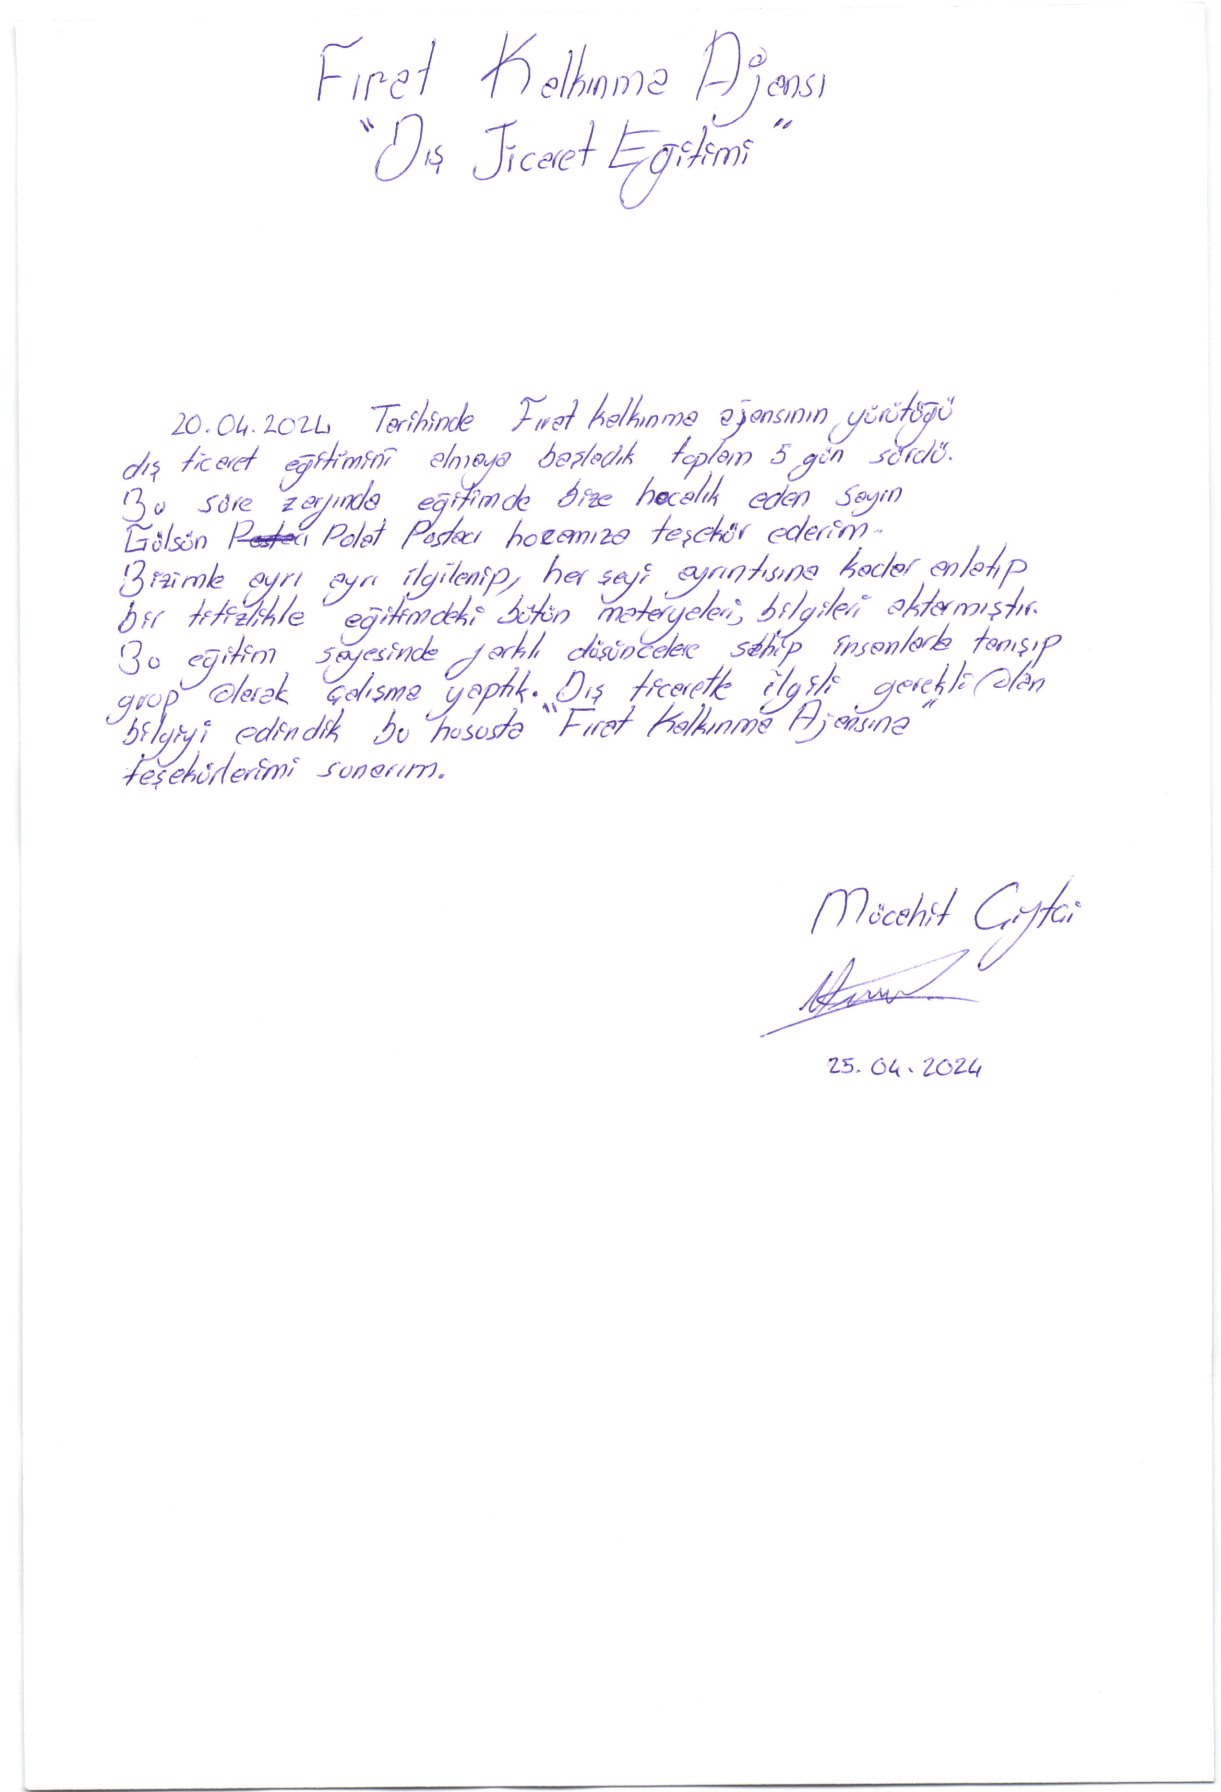 Fırat Kalkınma Ajansı
"Dış Ticaret Eğitimi"
20.04.2024 Tarihinde Fırat kalkınma ajansının yürütüğü
dış ticaret eğitimini almaya başladık toplam 5 gün sürdü.
Bu süre zarfında eğitimde bize hocalık eden sayın
Gülsün Postacı Polat Postacı hocamıza teşekür ederim.
Bizimle ayrı ayrı ilgilenip, her şeyi ayrıntısına kadar anlatıp
bir titizlikle eğitimdeki bütün materyaleri, bilgileri aktarmıştır.
Bu eğitim sayesinde farklı düşüncelere sahip insanlarla tanışıp
grup olarak çalışma yaptık. Dış ticaretle ilgili gerekli olan
bilgiyi edindik bu hususta "Fırat Kalkınma Ajansına"
teşekürlerimi sunarım.
Mücahit Çiftci
25.04.2024